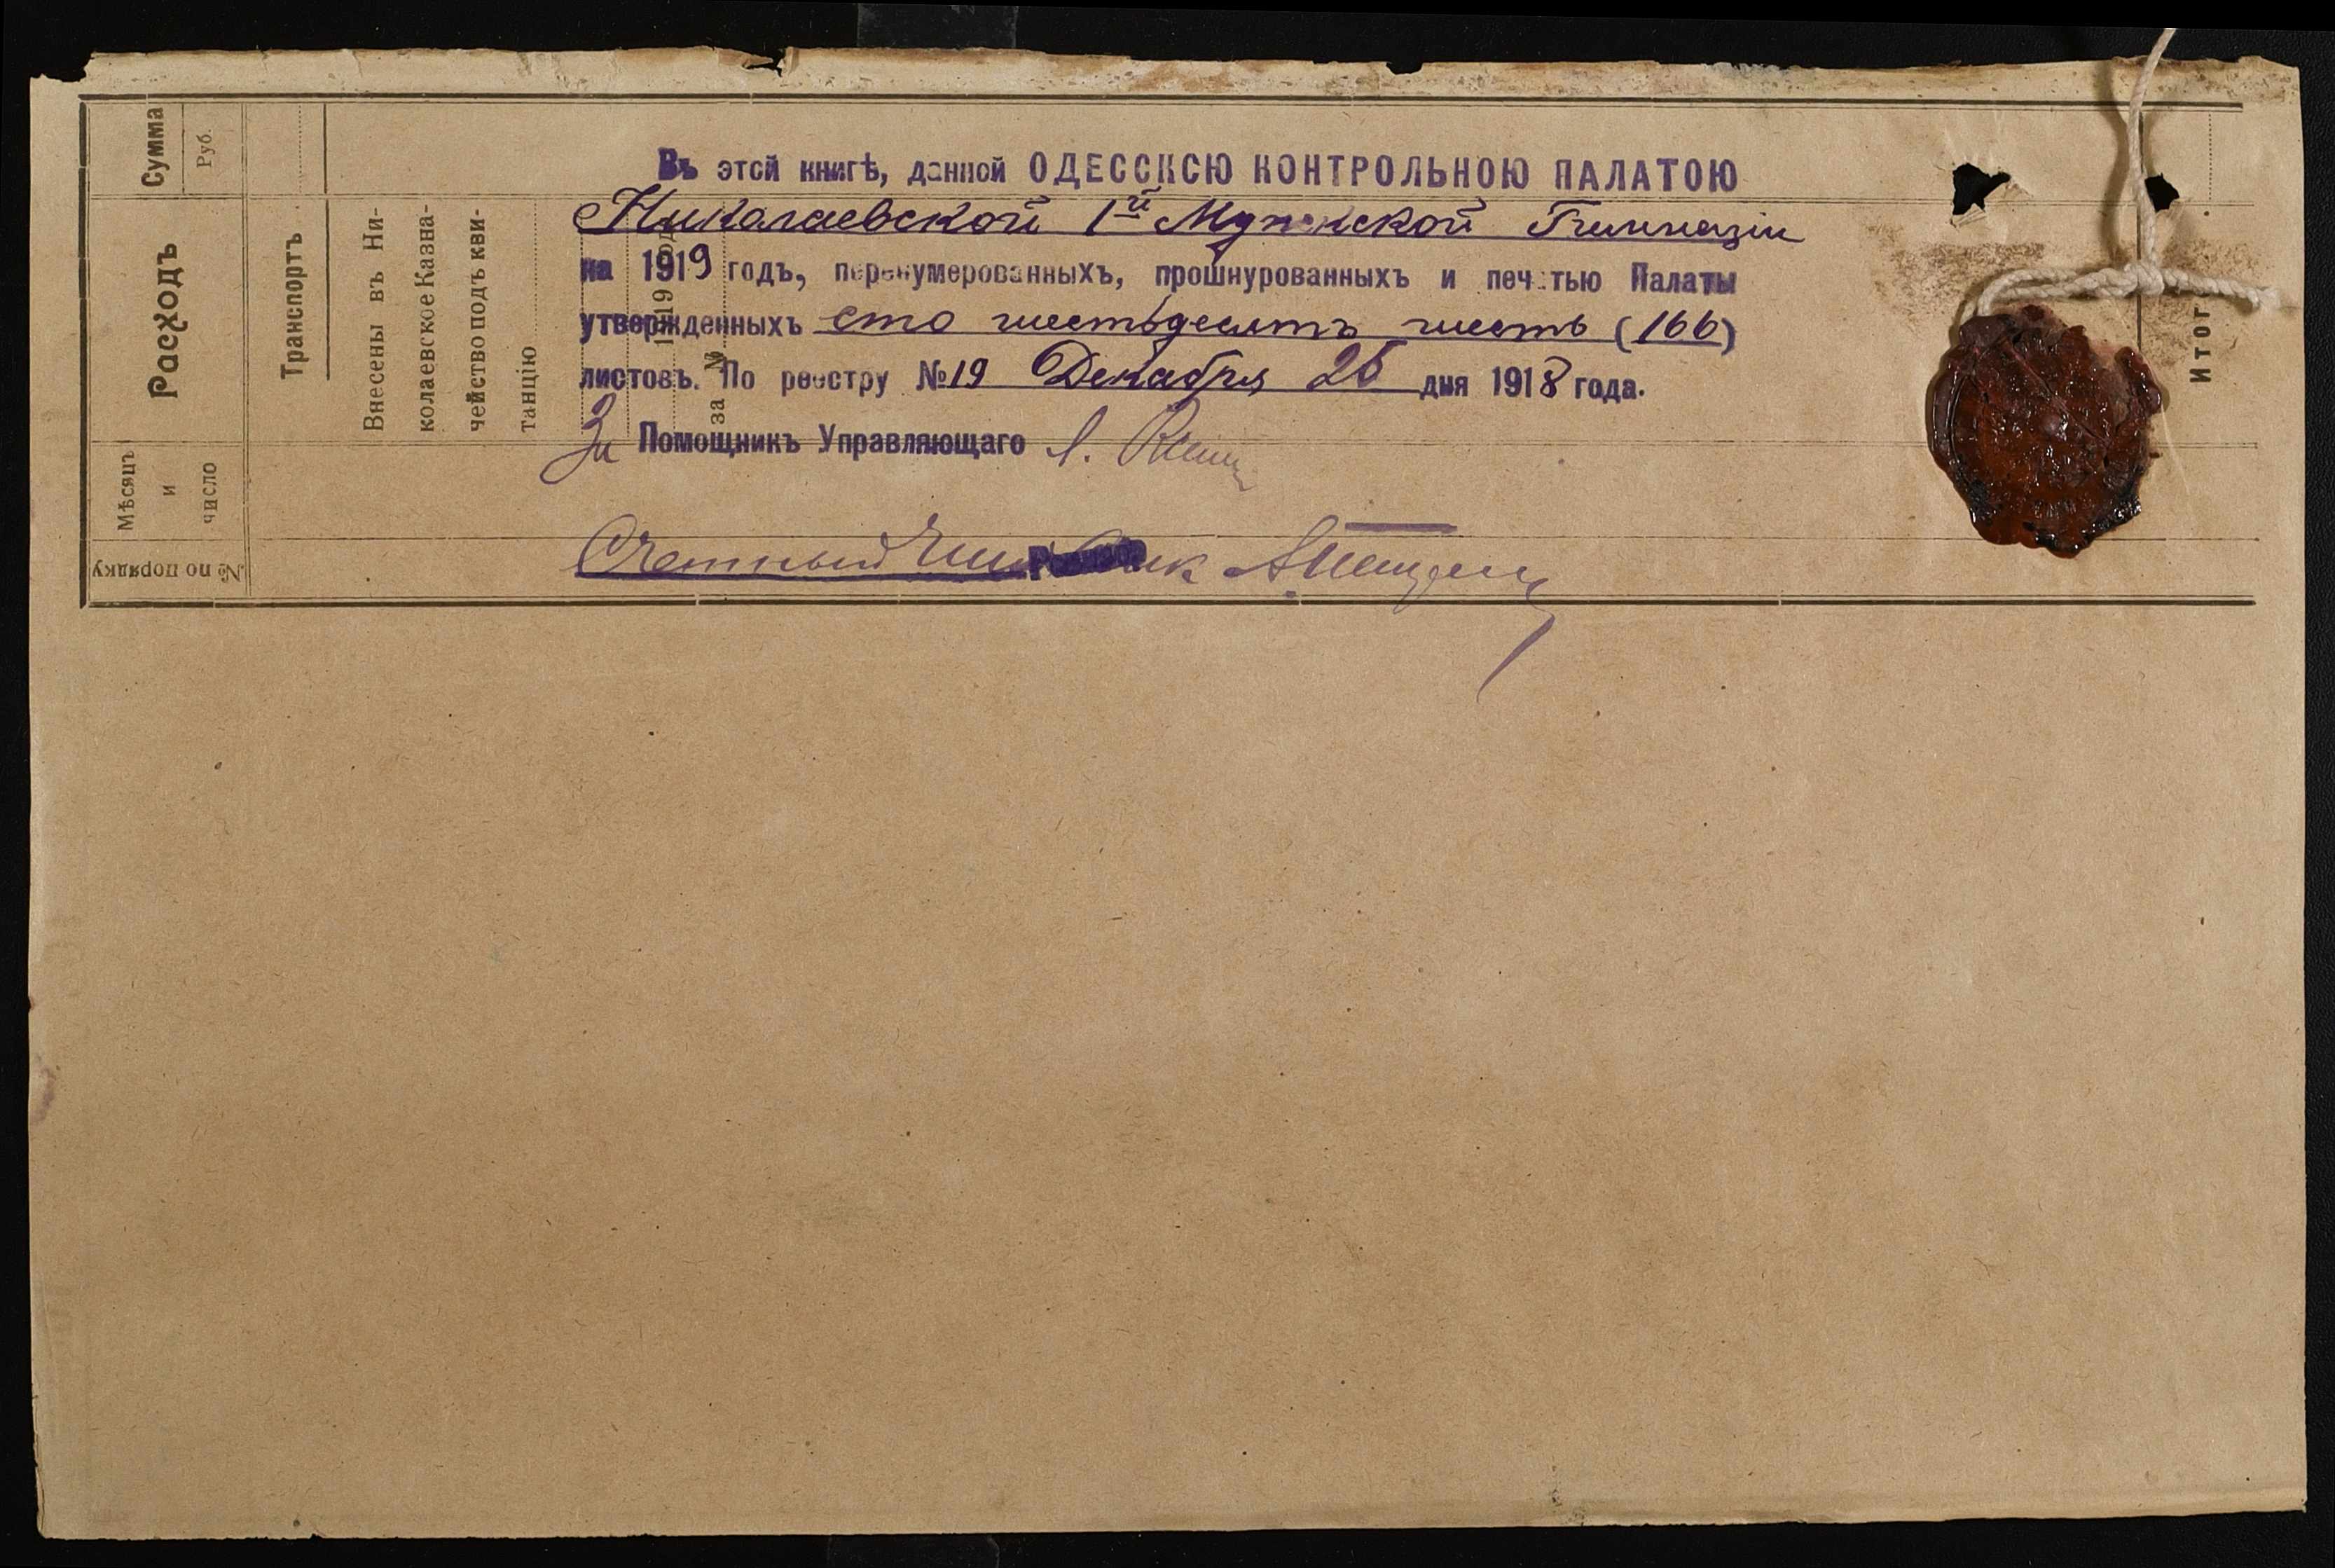 Въ этой книгѣ, данной ОДЕССКСЮ КОНТРОЛЬНОЮ ПАЛАТОЮ
Николаевской 1й Мужской Гимназіи
на 1919 годъ, перенумерованныхъ, прошнурованныхъ и печатью Палаты
утвержденныхъ сто шестьдесятъ шесть (166)
листовъ. По реестру №19 Декабря дня 1918 года.
За Помощникъ Управляющаго
Счетный
Сумма
Руб.
Расходъ
Мѣсяцъ
и
число
№ по порядку
Транспортъ
Внесены въ Ни-
колаевское Казна-
чейство подъ кви-
танцію
1919 год
за №
Итог